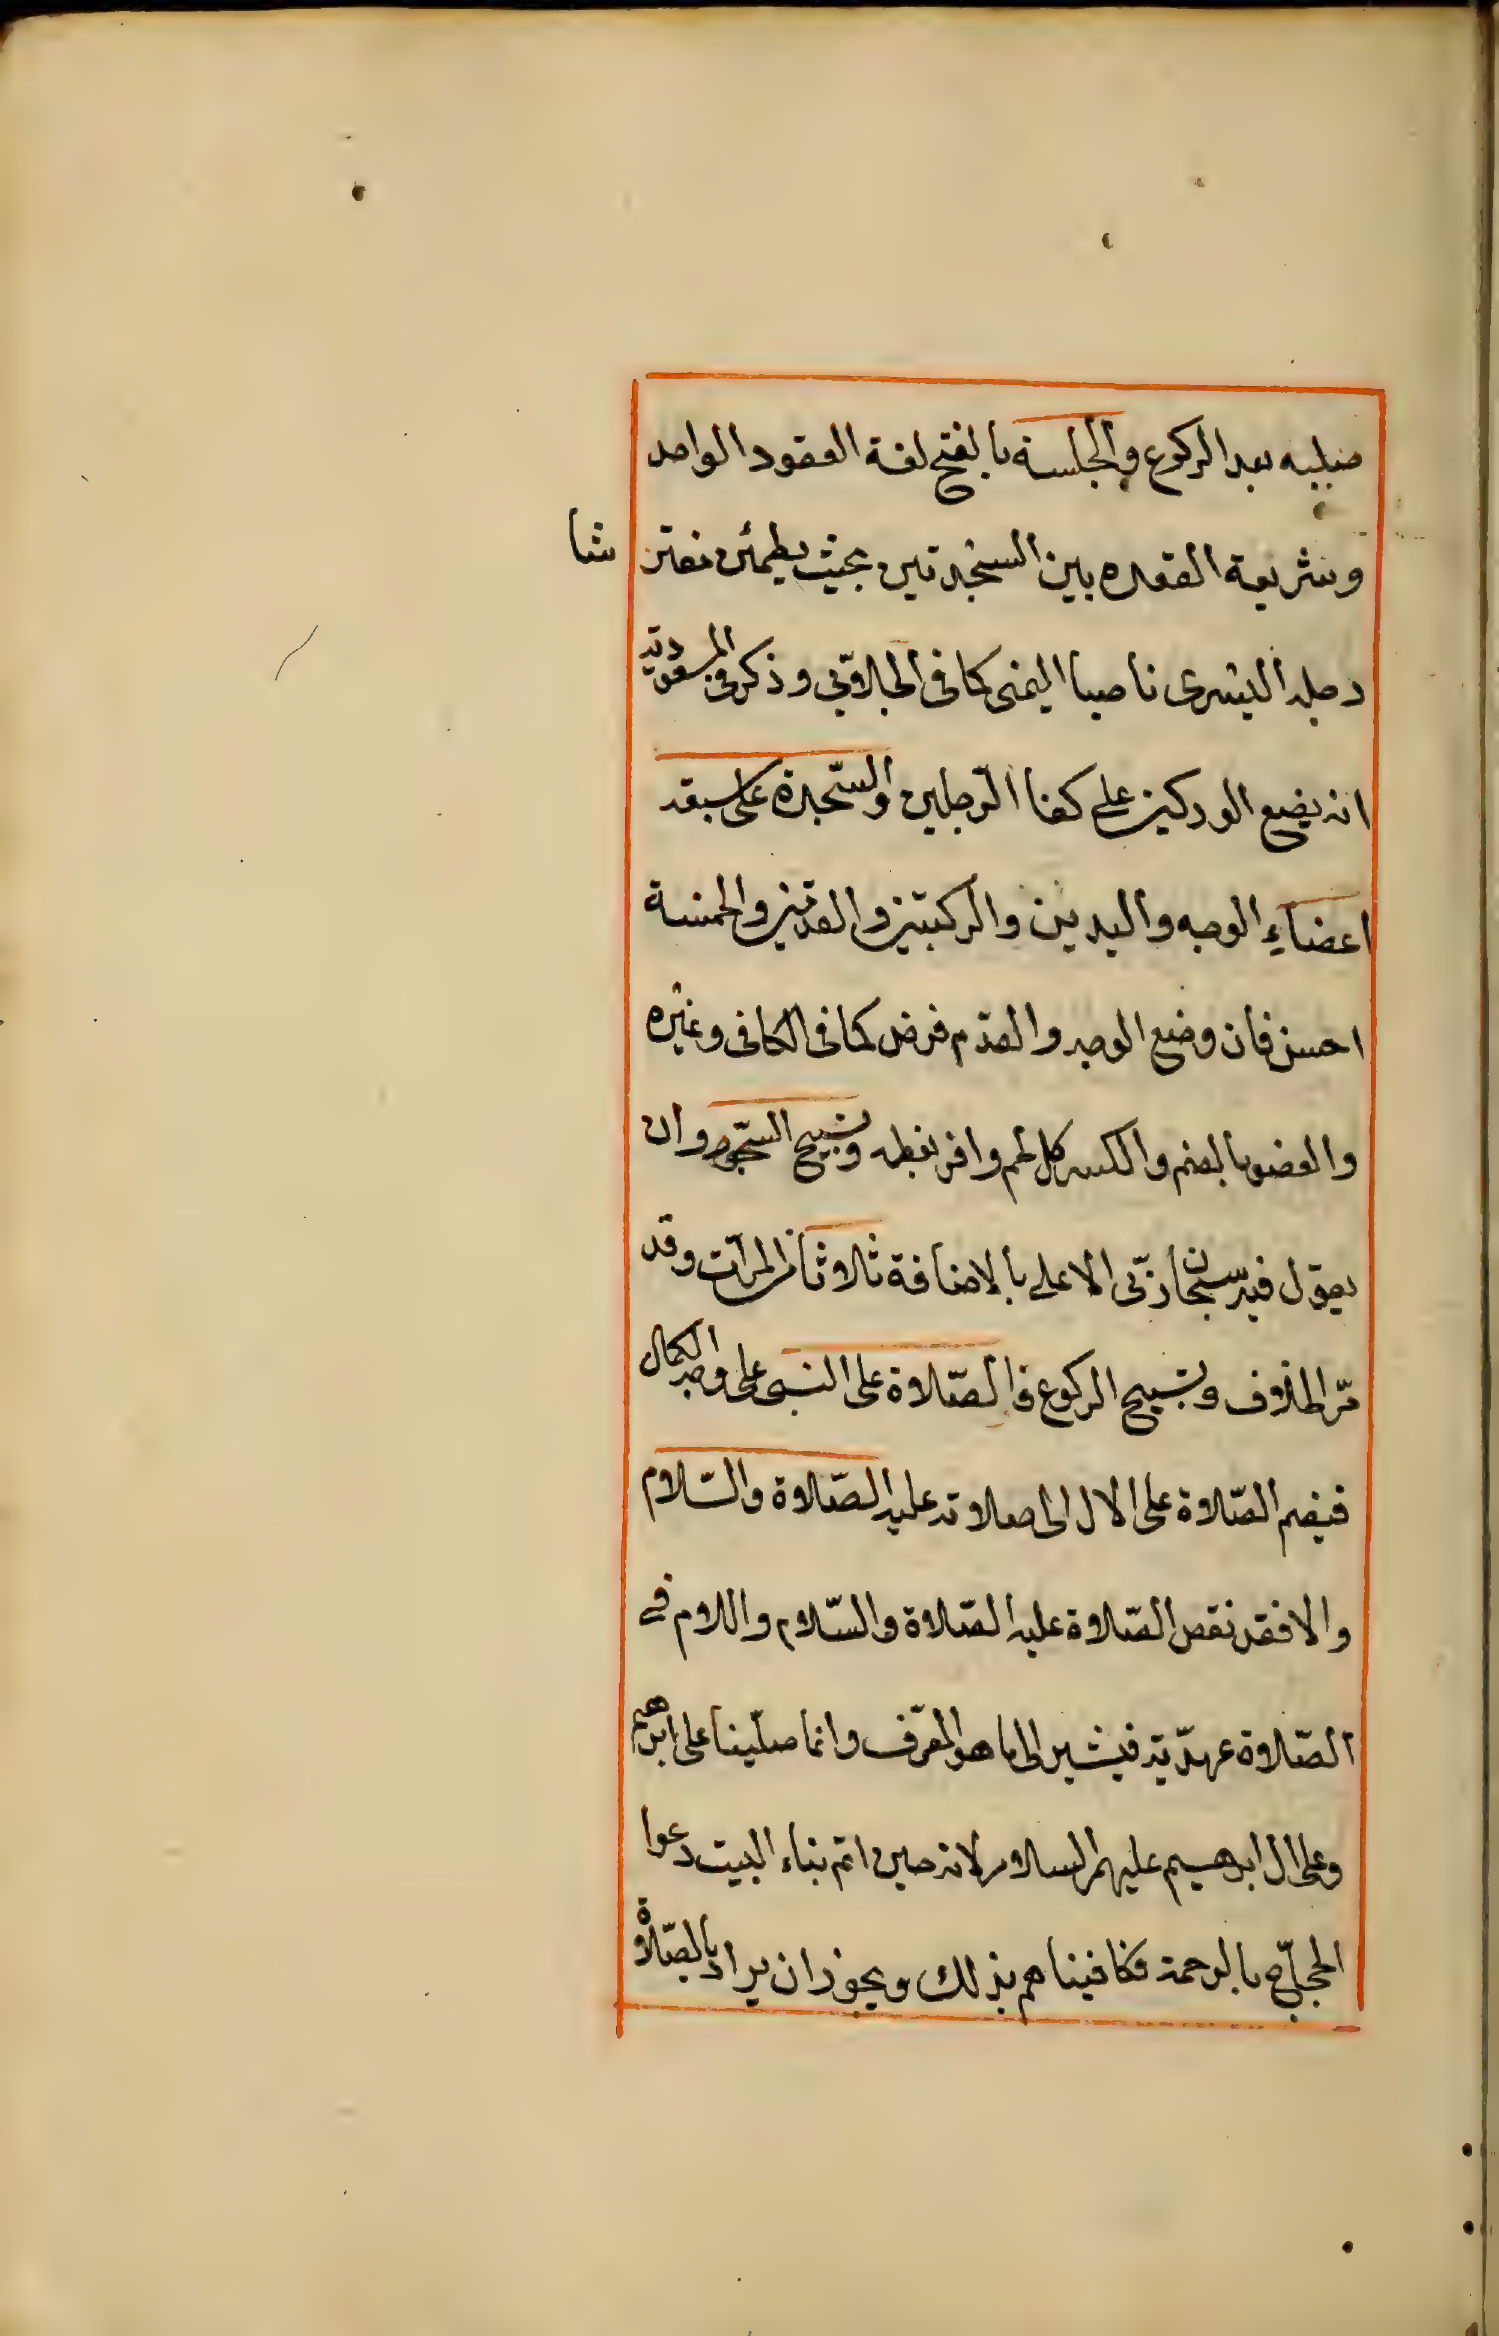 صلبيه بعد الركوع والجلسة بالفتح لغة القعود الواحد
وشريعة القعده بين السجدتين بحيث يطمئن مفتر شا
رجله اليسرى ناصبا اليمنى كما في الجلابي وذكر في المسعودية
انه يضع الوركين على كفا الرجلين والسّجدة على سبعة
اعضاءِ الوجه واليدين والركبتين والقدمين والخمسة
احسن فان وضع الوجه والقدم فرض كما في الكافي وغيره
والعضو بالضم والكسر كل لحم وافر بعظمه وتسبيح السّجود وان
يقول فيه سبحان ربّى الاعلى بالاضافة ثلاوثا من المرّات وقد
مرّ الخلاف وتسبيح الركوع فالصّلاوة على النبى على وجه الكمال
فيضم الصّلاوة على الال الى صلاوته عليه الصّلاوة والسّلام
والا فقد نقص الصّلاوة عليه الصّلاوة والسّلام واللام في
الصّلاوة عهدّية فيشير الى ما هو المعرّف وانما صلّينا على ابرهيم
وعلى ال ابرهيم عليهم السلام لانه حين اتم بناء البيت دعوا
الحجاّج بالرحمة فكافيناهم بذلك ويجوز ان يراد بالصّلاة